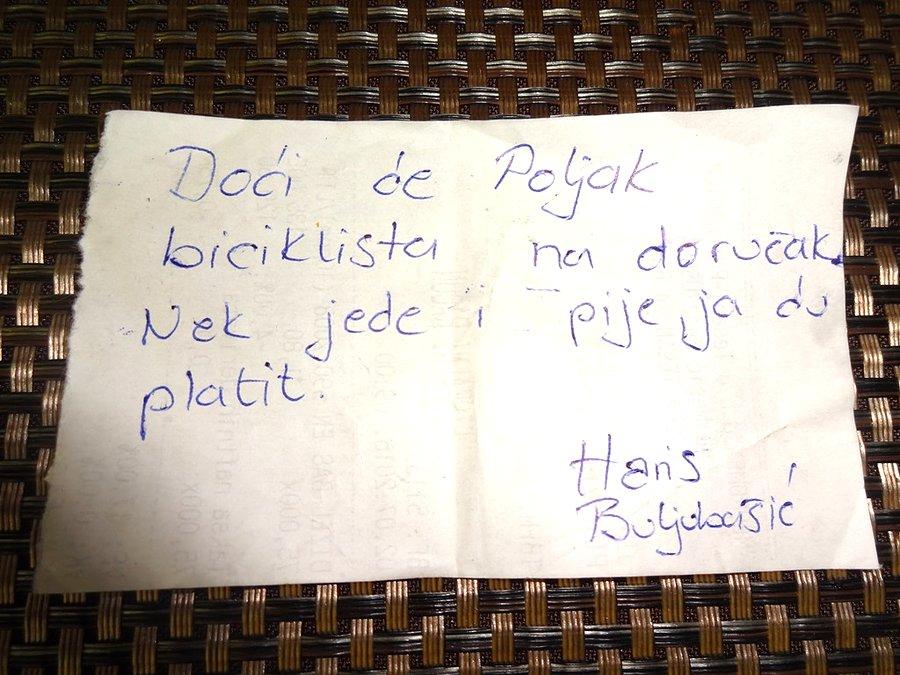 Doći će Poljak
biciklista na doručak.
Nek jede i pije, ja ću
platit.
Haris
Buljubašić